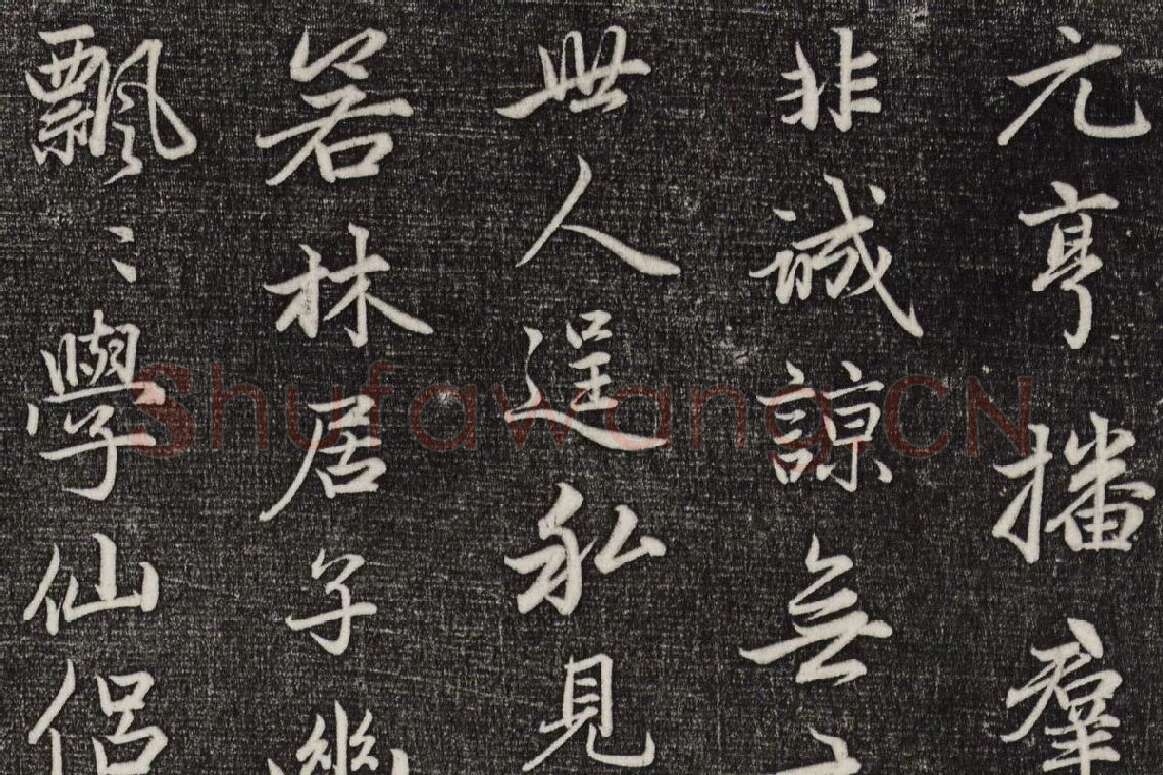 元亨播羣
非誠諒無
世人逞私見
若林居子幽
飄〻學仙侶
Shufawang.CN